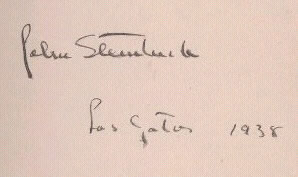 John Steinbeck
Los Gatos 1938